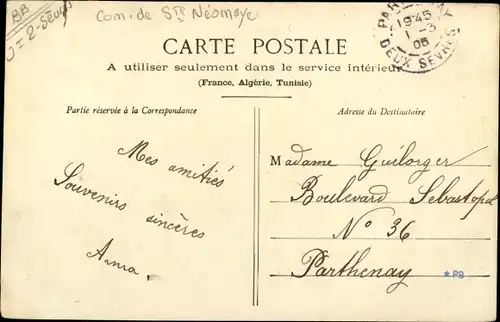 BB
D = 2-Sèvres
Com. de Ste Néomaye
PARTHENAY
19 45
1 - 3
05
DEUX SEVRES
CARTE POSTALE
A utiliser seulement dans le service intérieur
(France, Algérie, Tunisie)
Partie réservée à la Correspondance
Adresse du Destinataire
Mes amitiés
Souvenirs sincères
Anna.
Madame Guilorger
Boulevard Sebastopol
No 36
Parthenay
*PB